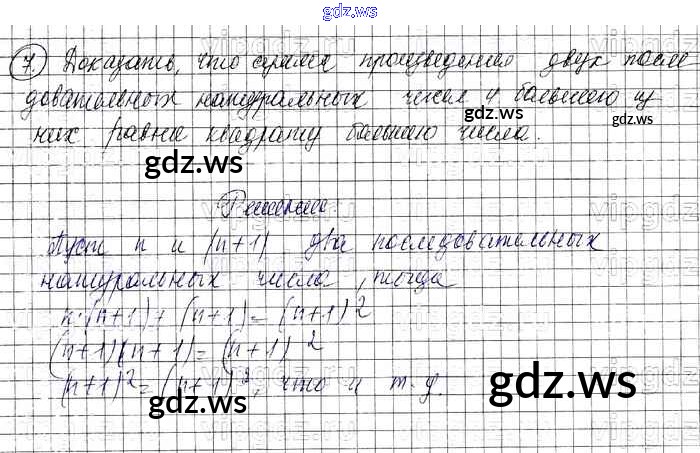 gdz.ws
7. Доказать, что сумма произведения двух после
довательных натуральных чисел и большего из
них равна квадрату большего числа.
gdz.ws
gdz.ws
Решение.
Пусть n и (n+1) два последовательных
натуральных числа, тогда
n·(n+1) + (n+1) = (n+1)²
(n+1)(n+1) = (n+1)²
(n+1)² = (n+1)², что и т.д.
gdz.ws
gdz.ws
gdz.ws